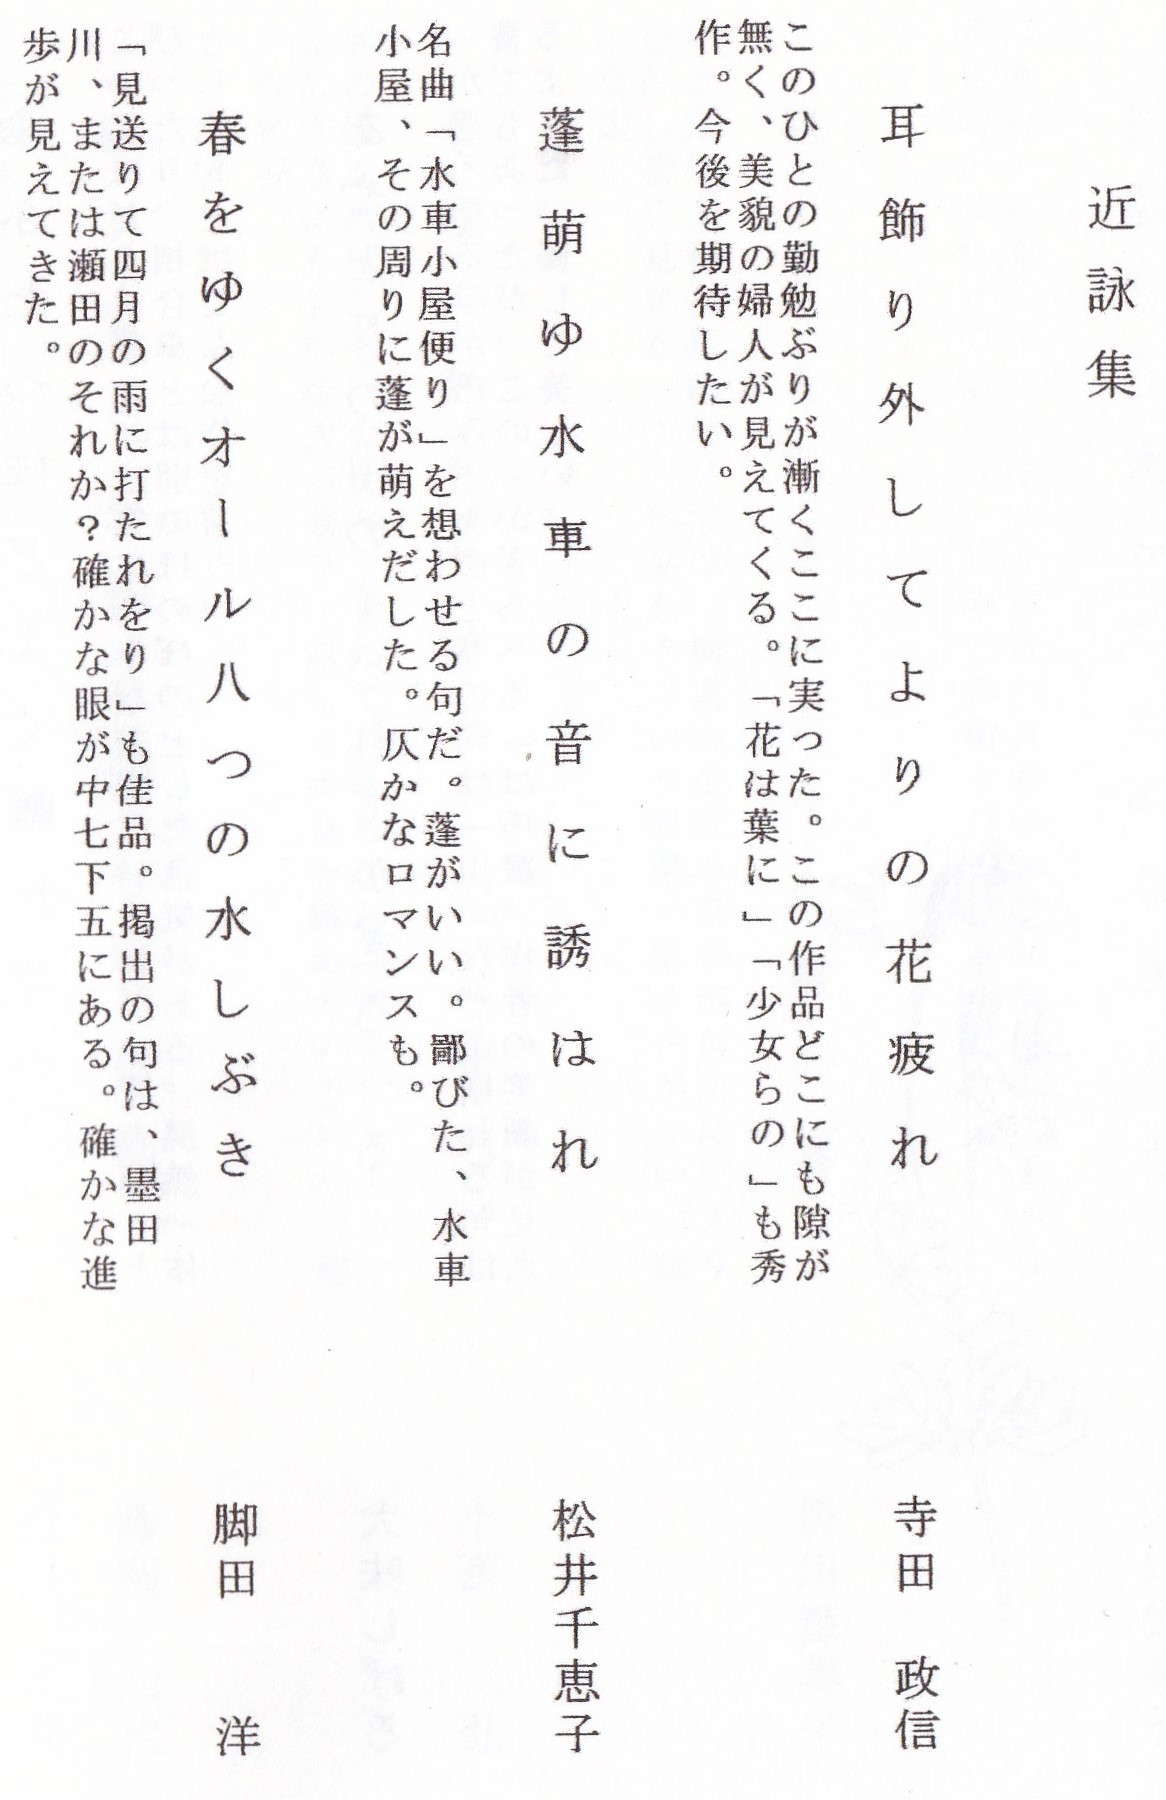 近詠集
耳飾り外してよりの花疲れ　寺田　政信
このひとの勤勉ぶりが漸くここに実った。この作品どこにも隙が
無く、美貌の婦人が見えてくる。「花は葉に」「少女らの」も秀
作。今後を期待したい。
蓬萌ゆ水車の音に誘はれ　松井千恵子
名曲「水車小屋便り」を想わせる句だ。蓬がいい。鄙びた、水車
小屋、その周りに蓬が萌えだした。仄かなロマンスも。
春をゆくオール八つの水しぶき　脚田　洋
「見送りて四月の雨に打たれをり」も佳品。掲出の句は、墨田
川、または瀬田のそれか？確かな眼が中七下五にある。確かな進
歩が見えてきた。